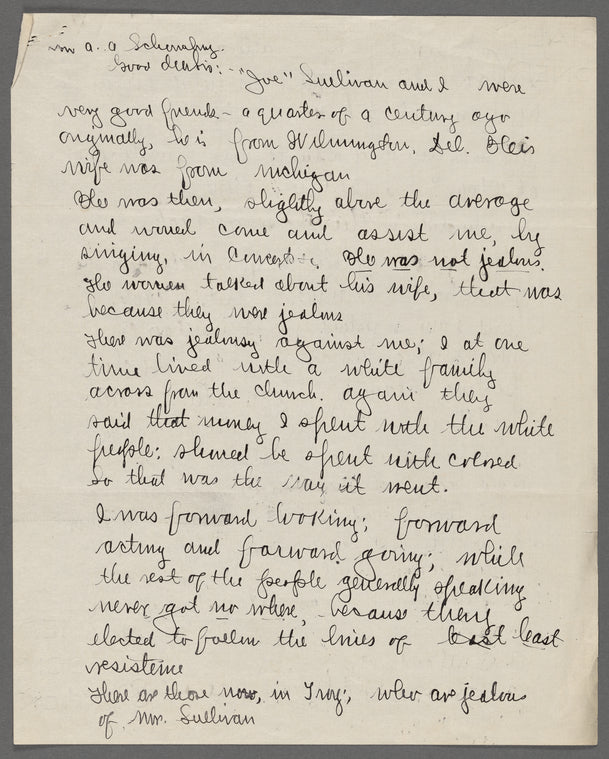 a. a Schomburg.
Good debts: - "Joe" Sullivan and I were
very good friends - a quarter of a century ago
originally, he is from Wilmington, Del. His
wife was from michigan
He was then, slightly above the average
and would come and assist me, by
singing, in Concerts. He was not jealous.
The women talked about his wife, that was
because they were jealous
There was jealousy against me; I at one
time lived with a white family
across from the church. again they
said that money I spent with the white
people; should be spent with colored
So that was the way it went.
I was forward looking; forward
acting and forward going; while
the rest of the people generally speaking
never got no where, because they
elected to follow the lines of least least
resistence
There are those now, in Troy; who are jealous
of Mr. Sullivan